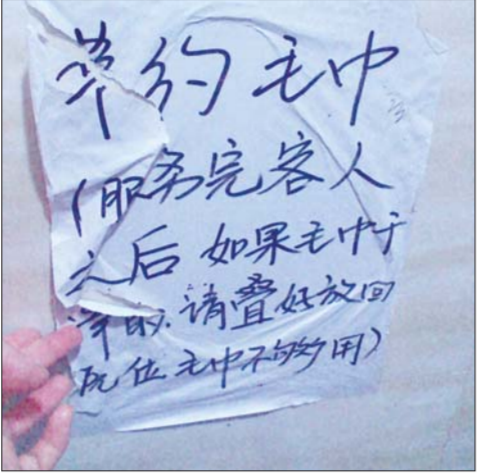 节约毛巾
(服务完客人
之后 如果毛巾干
净的.请叠好放回
原位 毛巾不够多用)